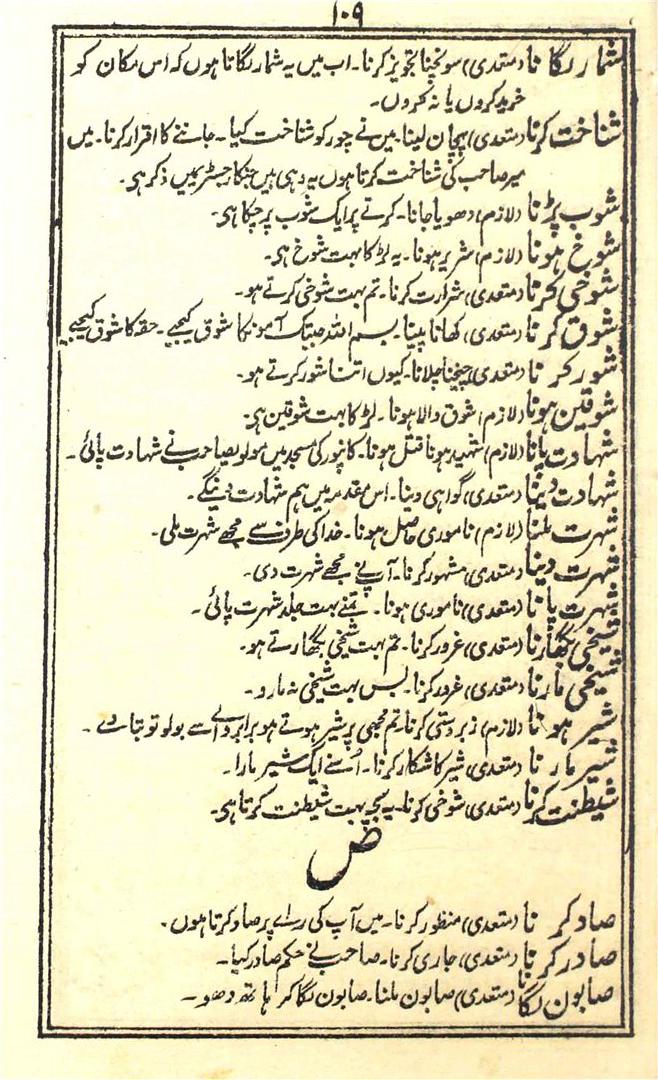 ۱۰۹
شمار لگانا (متعدی) سونچنا تجویز کرنا۔ اب میں یہ شمار لگاتا ہوں کہ اس مکان کو
خرید کروں یا نہ کروں۔
شناخت کرنا (متعدی) پہچان لینا۔ میں نے چور کو شناخت کیا۔ جاننے کا اقرار کرنا۔ میں
میر صاحب کی شناخت کرتا ہوں یہ وہی ہیں جنکا رجسٹر میں ذکر ہی۔
شوب پڑنا (لازم) دھویا جانا۔ کرتے پر ایک شوب پڑ چکا ہی۔
شوخ ہونا (لازم) شریر ہونا۔ یہ لڑکا بہت شوخ ہی۔
شوخی کرنا (متعدی) شرارت کرنا۔ تم بہت شوخی کرتے ہو۔
شوق کرنا (متعدی) کھانا پینا۔ بسم اللہ جبتک آمونکا شوق کیجیے۔ حقہ کا شوق کیجیے
شور کرنا (متعدی) چیخنا چلانا۔ کیوں اتنا شور کرتے ہو۔
شوقین ہونا (لازم) شوق والا ہونا۔ لڑکا بہت شوقین ہی۔
شہادت پانا (لازم) شہید ہونا قتل ہونا۔ کانپور کی مسجد میں مولویصاحب نے شہادت پائی۔
شہادت دینا (متعدی) گواہی دینا۔ اس مقدمہ میں ہم شہادت دینگے۔
شہرت ملنا (لازم) ناموری حاصل ہونا۔ خدا کی طرف سے مجھے شہرت ملی۔
شہرت دینا (متعدی) مشہور کرنا۔ آپنے مجھے شہرت دی۔
شہرت پانا (متعدی) ناموری ہونا۔ تمنے بہت جلد شہرت پائی۔
شیخی بگھارنا (متعدی) غرور کرنا۔ تم بہت شیخی بگھارتے ہو۔
شیخی مارنا (متعدی) غرور کرنا۔ بس بہت شیخی نہ مارو۔
شیر ہونا (لازم) زبردستی کرنا۔ تم مجھی پر شیر ہوتے ہو برابر والے سے بولو تو بتا دے۔
شیر مارنا (متعدی) شیر کا شکار کرنا۔ اُسنے ایک شیر مارا۔
شیطنت کرنا (متعدی) شوخی کرنا۔ یہ بچہ بہت شیطنت کرتا ہی۔
ض
صاد کرنا (متعدی) منظور کرنا۔ میں آپ کی راے پر صاد کرتا ہوں۔
صادر کرنا (متعدی) جاری کرنا۔ صاحب نے حکم صادر کیا۔
صابون لگانا (متعدی) صابون ملنا۔ صابون لگا کر ہاتھ دھو۔